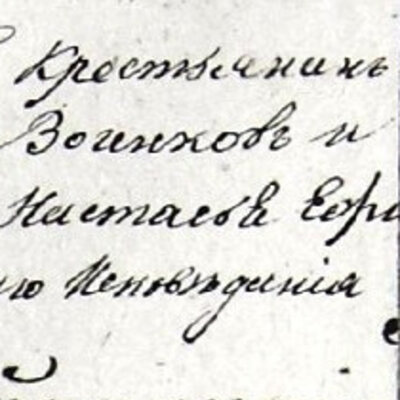 Крестьянинъ
Воинковъ и
Настасья Ефи
го Исповѣданія